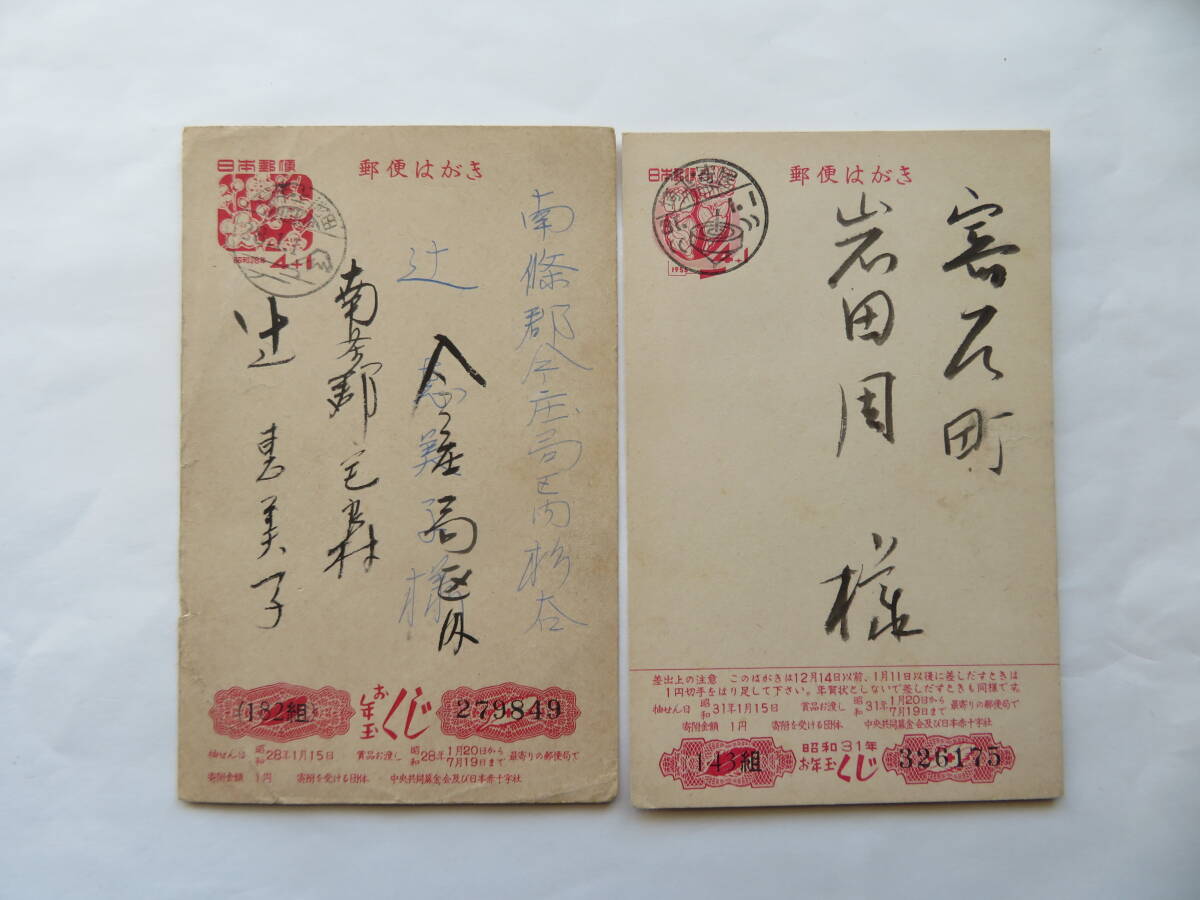 日本郵便
郵便はがき
昭和28年
4+1
南條郡今庄局区内杉谷
辻
様
入
局区内
南条郡宅良村
辻 恵美子
(182組)
お年玉くじ
279849
抽せん日 昭和28年1月15日 賞品お渡し 昭和28年1月20日から7月19日まで 最寄りの郵便局で
寄附金額 1円 寄附を受ける団体 中央共同募金会及び日本赤十字社
日本郵便
郵便はがき
1955
4+1
31.1.1
岩田周 様
差出上の注意 このはがきは12月14日以前、1月11日以後に差しだすときは
1円切手をはり足して下さい。年賀状としないで差しだすときも同様です。
抽せん日 昭和31年1月15日 賞品お渡し 昭和31年1月20日から7月19日まで 最寄りの郵便局で
寄附金額 1円 寄附を受ける団体 中央共同募金会及び日本赤十字社
143組
昭和31年
お年玉くじ
326175